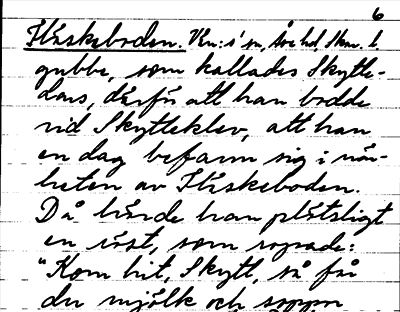 6
Fläskeboden. Vln: s' sn, Åse hd, Skar. l.
gubbe, som kallades Skytte-
Lars, därför att han bodde
vid Skytteklev, att han
en dag befann sig i när-
heten av Fläskeboden.
Då hörde han plötsligt
en röst, som ropade:
"Kom hit, Skytt, så får
du mjölk och soppa